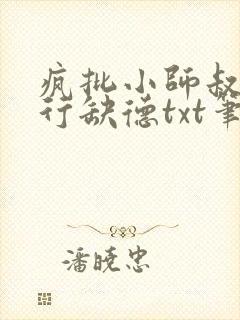 疯批小师叔
行缺德txt笔
潘晓忠